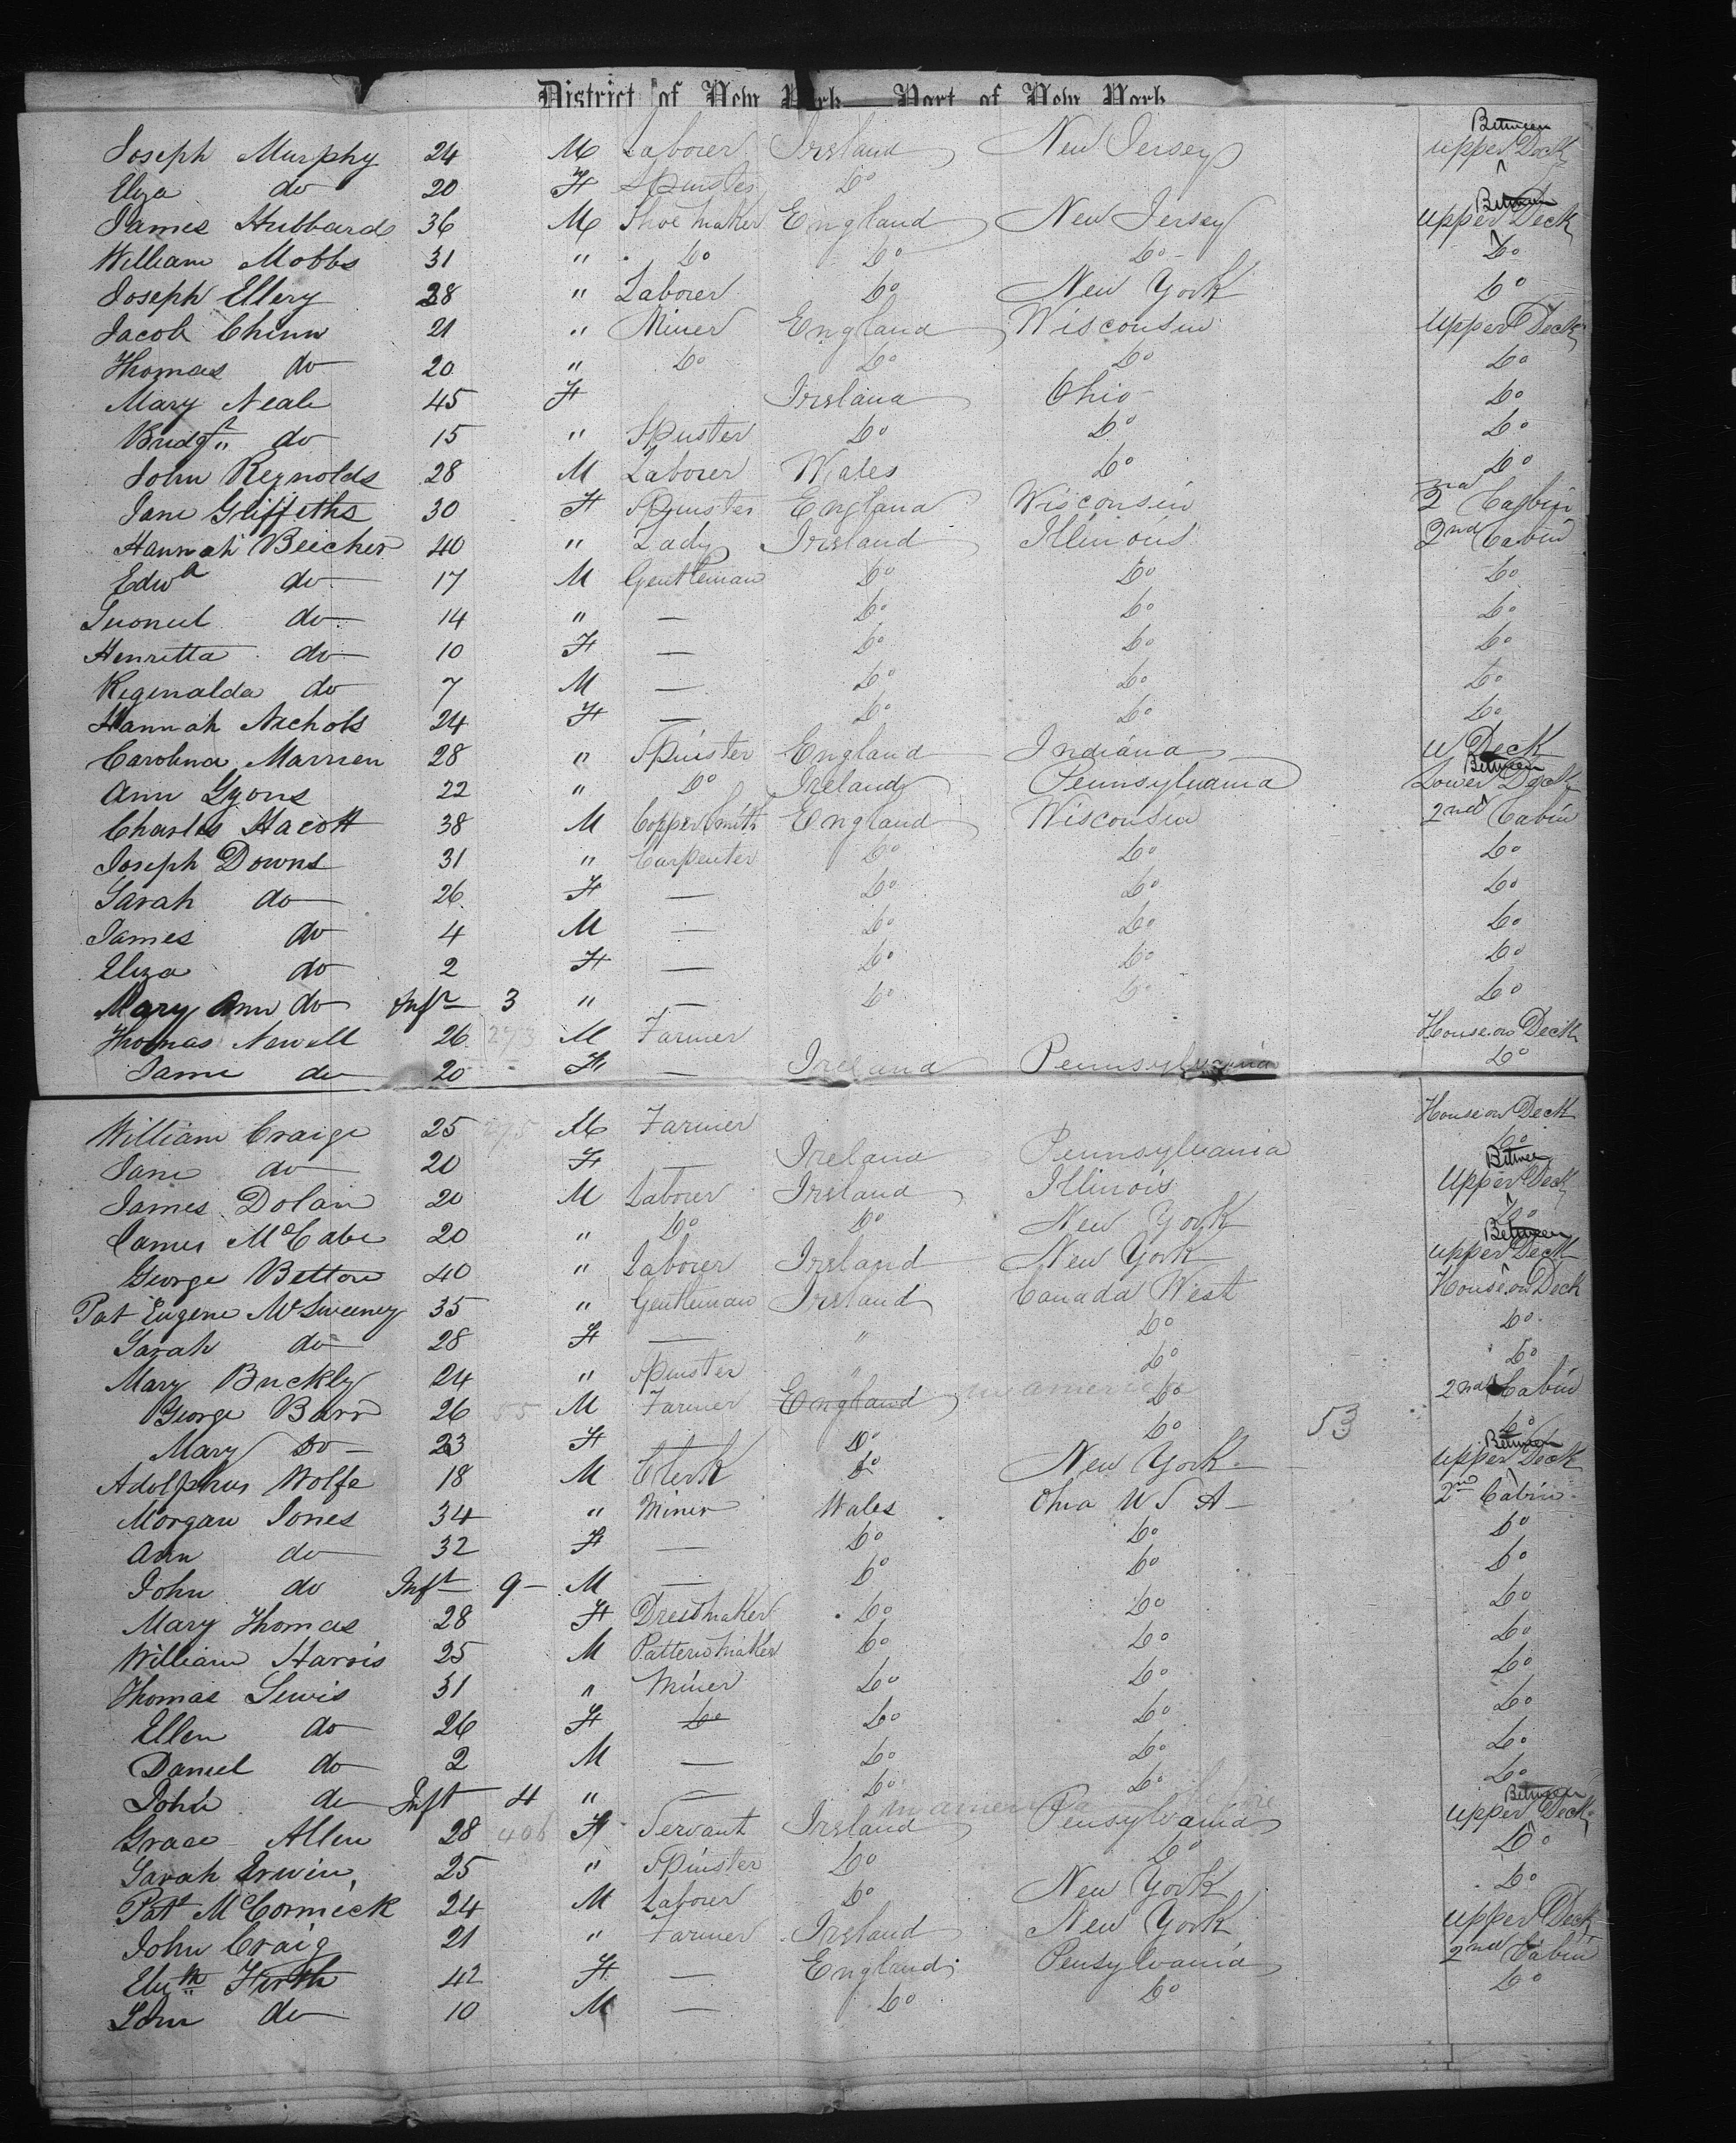 District of New York — Port of New York
Joseph Murphy 24 M Laborer Ireland New Jersey Between upper Deck
Eliza do 20 F Spinster Do
James Hubbard 36 M Shoe maker England New Jersey Between upper Deck
William Mobbs 31 " Do Do Do Do
Joseph Ellery 28 " Laborer Do New York Do
Jacob Chinn 21 " Miner England Wisconsin upper Deck
Thomas do 20 " Do Do Do Do
Mary Neale 45 F Ireland Ohio Do
Bridgt do 15 " Spinster Do Do Do
John Reynolds 28 M Laborer Wales Do Do
Jane Griffeths 30 F Spinster England Wisconsin 2nd Cabin
Hannah Beecher 40 " Lady Ireland Illinois 2nd Cabin
Edwd do 17 M Gentleman Do Do Do
do 14 " — Do Do Do
Henretta do 10 F — Do Do Do
Reginalda do 7 M — Do Do Do
Hannah Nichols 24 F — Do Do Do
Carolina Marrien 28 " Spinster England Indiana U Deck
Ann Lyons 22 " Do Ireland Pennsylvania Between Lower Deck
Charles Hacott 38 M Copper Smith England Wisconsin 2nd Cabin
Joseph Downs 31 " Carpenter Do Do Do
Sarah do 26 F — Do Do Do
James do 4 M — Do Do Do
Eliza do 2 F — Do Do Do
Mary Ann do Inft 3 " — Do Do Do
Thomas Newell 26 273 M Farmer House on Deck
Jane do 20 F — Ireland Pennsylvania Do
William Craige 25 275 M Farmer House on Deck
Jane do 20 F — Ireland Pennsylvania Do
James Dolan 20 M Laborer Ireland Illinois Between Upper Deck
James McCabe 20 " Do Do New York Do
George Betton 40 " Laborer Ireland New York Between upper Deck
Pat Eugene McSweeney 35 " Gentleman Ireland Canada West House on Deck
Sarah do 28 F — " Do Do
Mary Buckly 24 " Spinster " Do Do
George Barr 26 55 M Farmer England in america Do 2nd Cabin
Mary Do 23 F Do Do 53 Do
Adolphus Wolfe 18 M Clerk Do New York Between upper Deck
Morgan Jones 34 " Miner Wales Ohio U S A 2nd Cabin
Ann do 32 F — Do Do Do
John do Inft 9 M — Do Do Do
Mary Thomas 28 F Dressmaker Do Do Do
William Harris 25 M Pattern maker Do Do Do
Thomas Lewis 31 " Miner Do Do Do
Ellen do 26 F Do Do Do Do
Daniel do 2 M — Do Do Do
John do Inft 4 " — Do Do Do
Grace Allen 28 406 F Servant Ireland in america Pensylvania Between upper Deck
Sarah Erwin 25 " Spinster Do Do Do
Patt McCormick 24 M Laborer Do New York Do
John Craig 21 " Farmer Ireland New York upper Deck
Elizth Firth 42 F — England Pensylvania 2nd Cabin
John do 10 M — Do Do Do